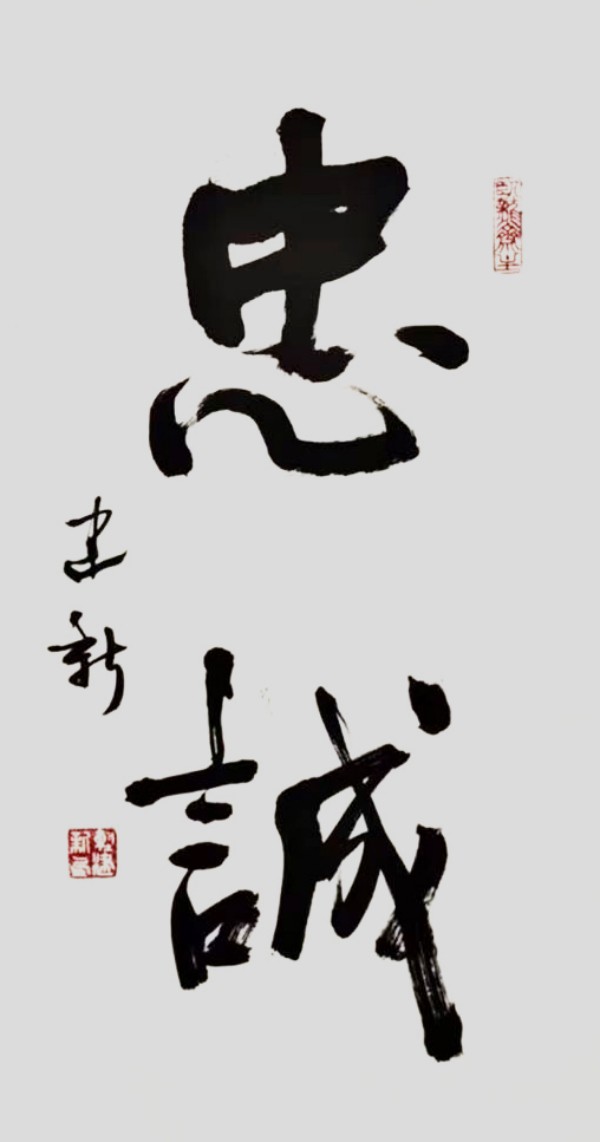 忠
誠
建新